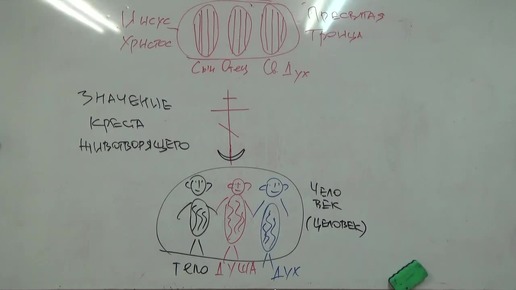 Иисус
Христос
Пресвятая
Троица
Сын Отец Св Дух
ЗНАЧЕНИЕ
КРЕСТА
ЖИВОТВОРЯЩЕГО
ЧЕЛО
ВЕК
(ЦЕЛОВЕК)
ТЕЛО ДУША ДУХ